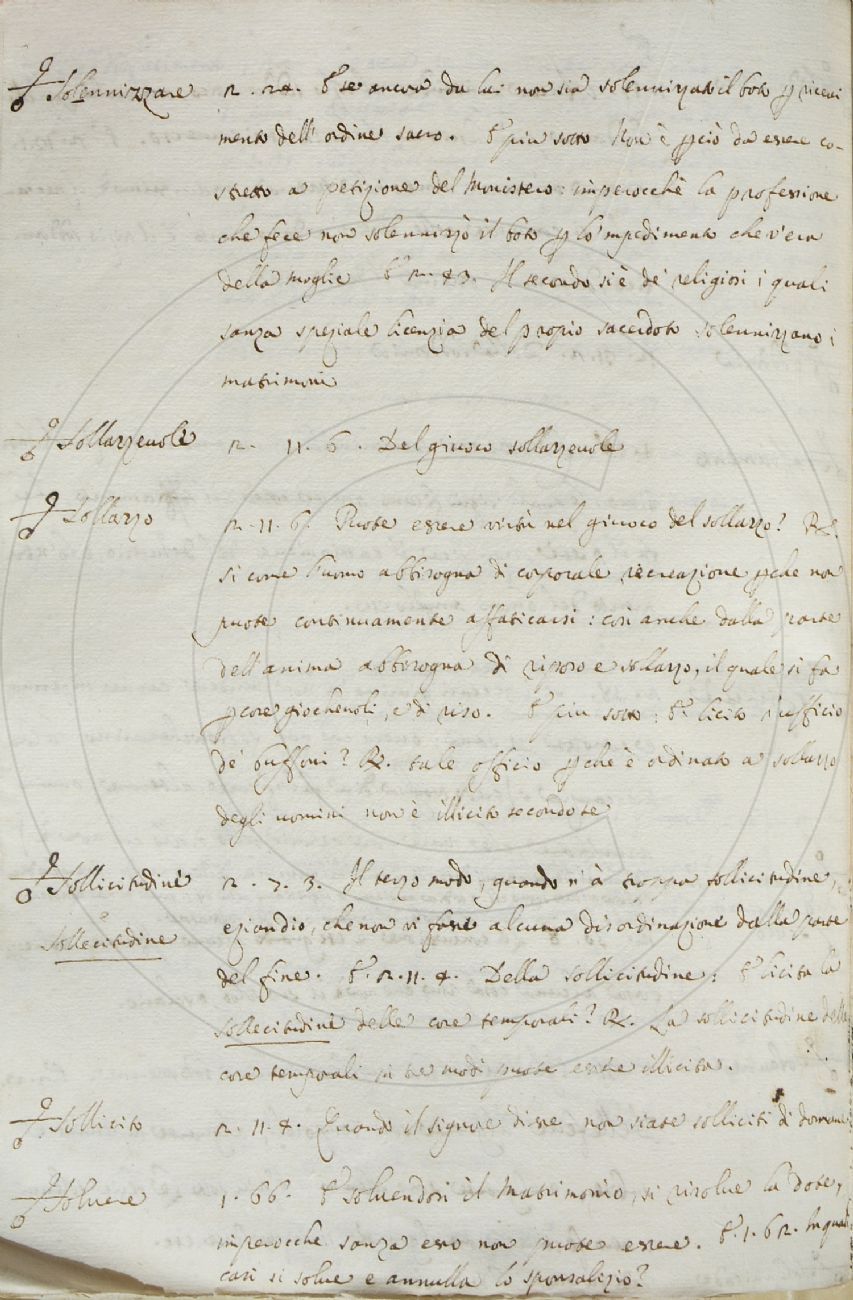 Solennizzare 2. 24. E se ancora da lui non sia solennizzato il boto p ricevi
mento dell'ordine sacro. E piu sotto Non è pciò da essere co-
stretto a petizione del Monistero: imperocchè la professione
che fece non solennizzò il boto p lo 'mpedimento che v'era
della moglie E 2. 43. Il secondo si è de' religiosi i quali
sanza speziale licenzia del propio sacerdote solennizzano i
matrimoni
Sollazzevole 2. 11. 6. Del giuoco sollazzevole
Sollazzo 2. 11. 6. Puote essere virtù nel giuoco del sollazzo? R.
si come l'uomo abbisogna di corporale recreazione pche non
puote continuamente affaticarsi: così anche dalla parte
dell'anima abbisogna di riposo e sollazzo, il quale si fa
p cose giochevoli, e di riso. E piu sotto: E licito l'ufficio
de' buffoni? R. tale officio pche è ordinato a sollazzo
degli uomini non è illicito secondo se
Sollicitudine 2. 7. 3. Il terzo modo, quando v'à troppa sollicitudine,
o
Sollecitudine eziandio, che non vi fosse alcuna disordinazione dalla parte
del fine. E. 2. 11. 4. Della sollicitudine: E licita la
sollecitudine delle cose temporali? R. La sollicitudine delle
cose temporali in tre modi puote essere illicita.
Sollicito 2. 11. 4. Quando il signore disse non siate solliciti di doman
Solvere 1. 66. E solvendosi il Matrimonio, si risolve la dote,
imperocche sanza esso non puote essere. E. 1. 62. In quai
casi si solve e annulla lo sponsalizio?